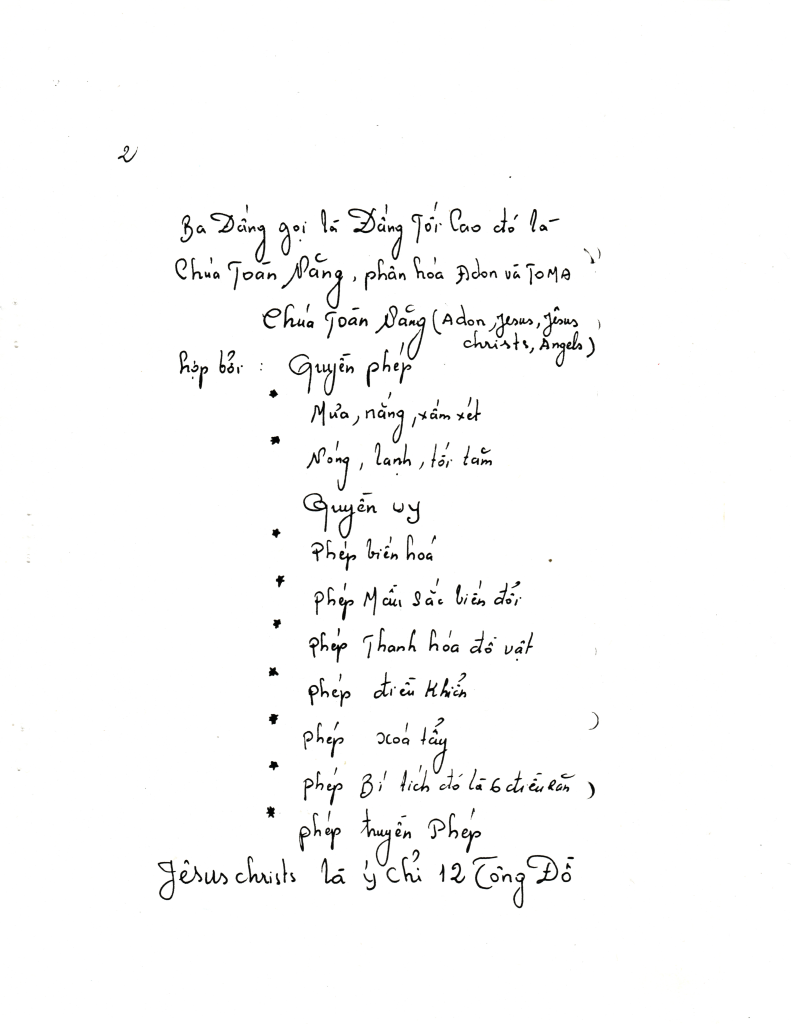 2
Ba Đấng gọi là Đấng Tối Cao đó là
Chúa Toàn Năng, phân hóa Adon và TOMA
Chúa Toàn Năng (Adon, Jesus, Jêsus
christs, Angels)
hợp bởi : Quyền phép
* Mưa, nắng, xấm xét
* Nóng, lạnh, tối tăm
Quyền uy
* Phép biến hoá
* phép Mầu sắc biến đổi
* phép Thanh hóa đồ vật
* phép điều Khiển
* phép xoá tẩy
* phép Bí tích đó là 6 điều Răn
* phép truyền Phép
Jêsus christs là ý chỉ 12 Tông Đồ